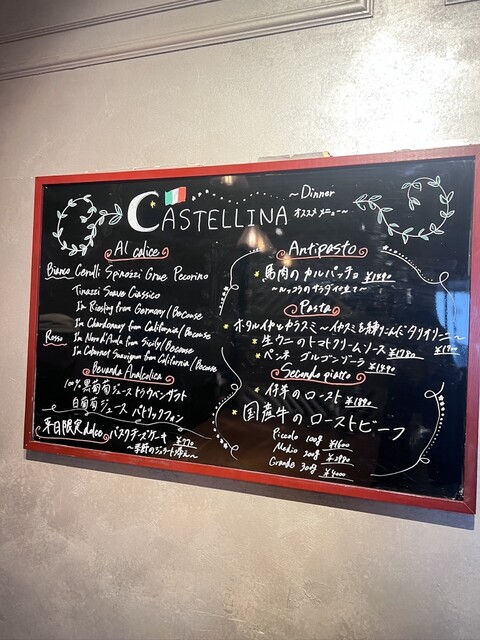 CASTELLINA
~Dinner
オススメメニュー~
Al calice
Bianco Cerulli Spinozzi Grue Pecorino
Tinazzi Soave Classico
In Riesling from Germany/Because
In Chardonnay from California/Because
Rosso In Nero d'Avola from Sicily/Because
In Cabernet Sauvignon from California/Because
Bevanda Analcolica
100%黒葡萄ジュース
白葡萄ジュース パトリックフォン
平日限定dolce バスクチーズケーキ ¥770
~季節のジェラート添え~
Antipasto
馬肉のカルパッチョ
~ルッコラのサラダ仕立て~
Pasta
ホタルイカとカラスミ~イカスミを練りこんだタリオリーニ~ ¥1900
生ウニのトマトクリームソース ¥1780
ペンネ ゴルゴンゾーラ ¥1490
Secondo piatto
仔羊のロースト ¥1890
国産牛のローストビーフ
Piccolo 100g ¥1600
Medio 200g
Grande 300g ¥4000